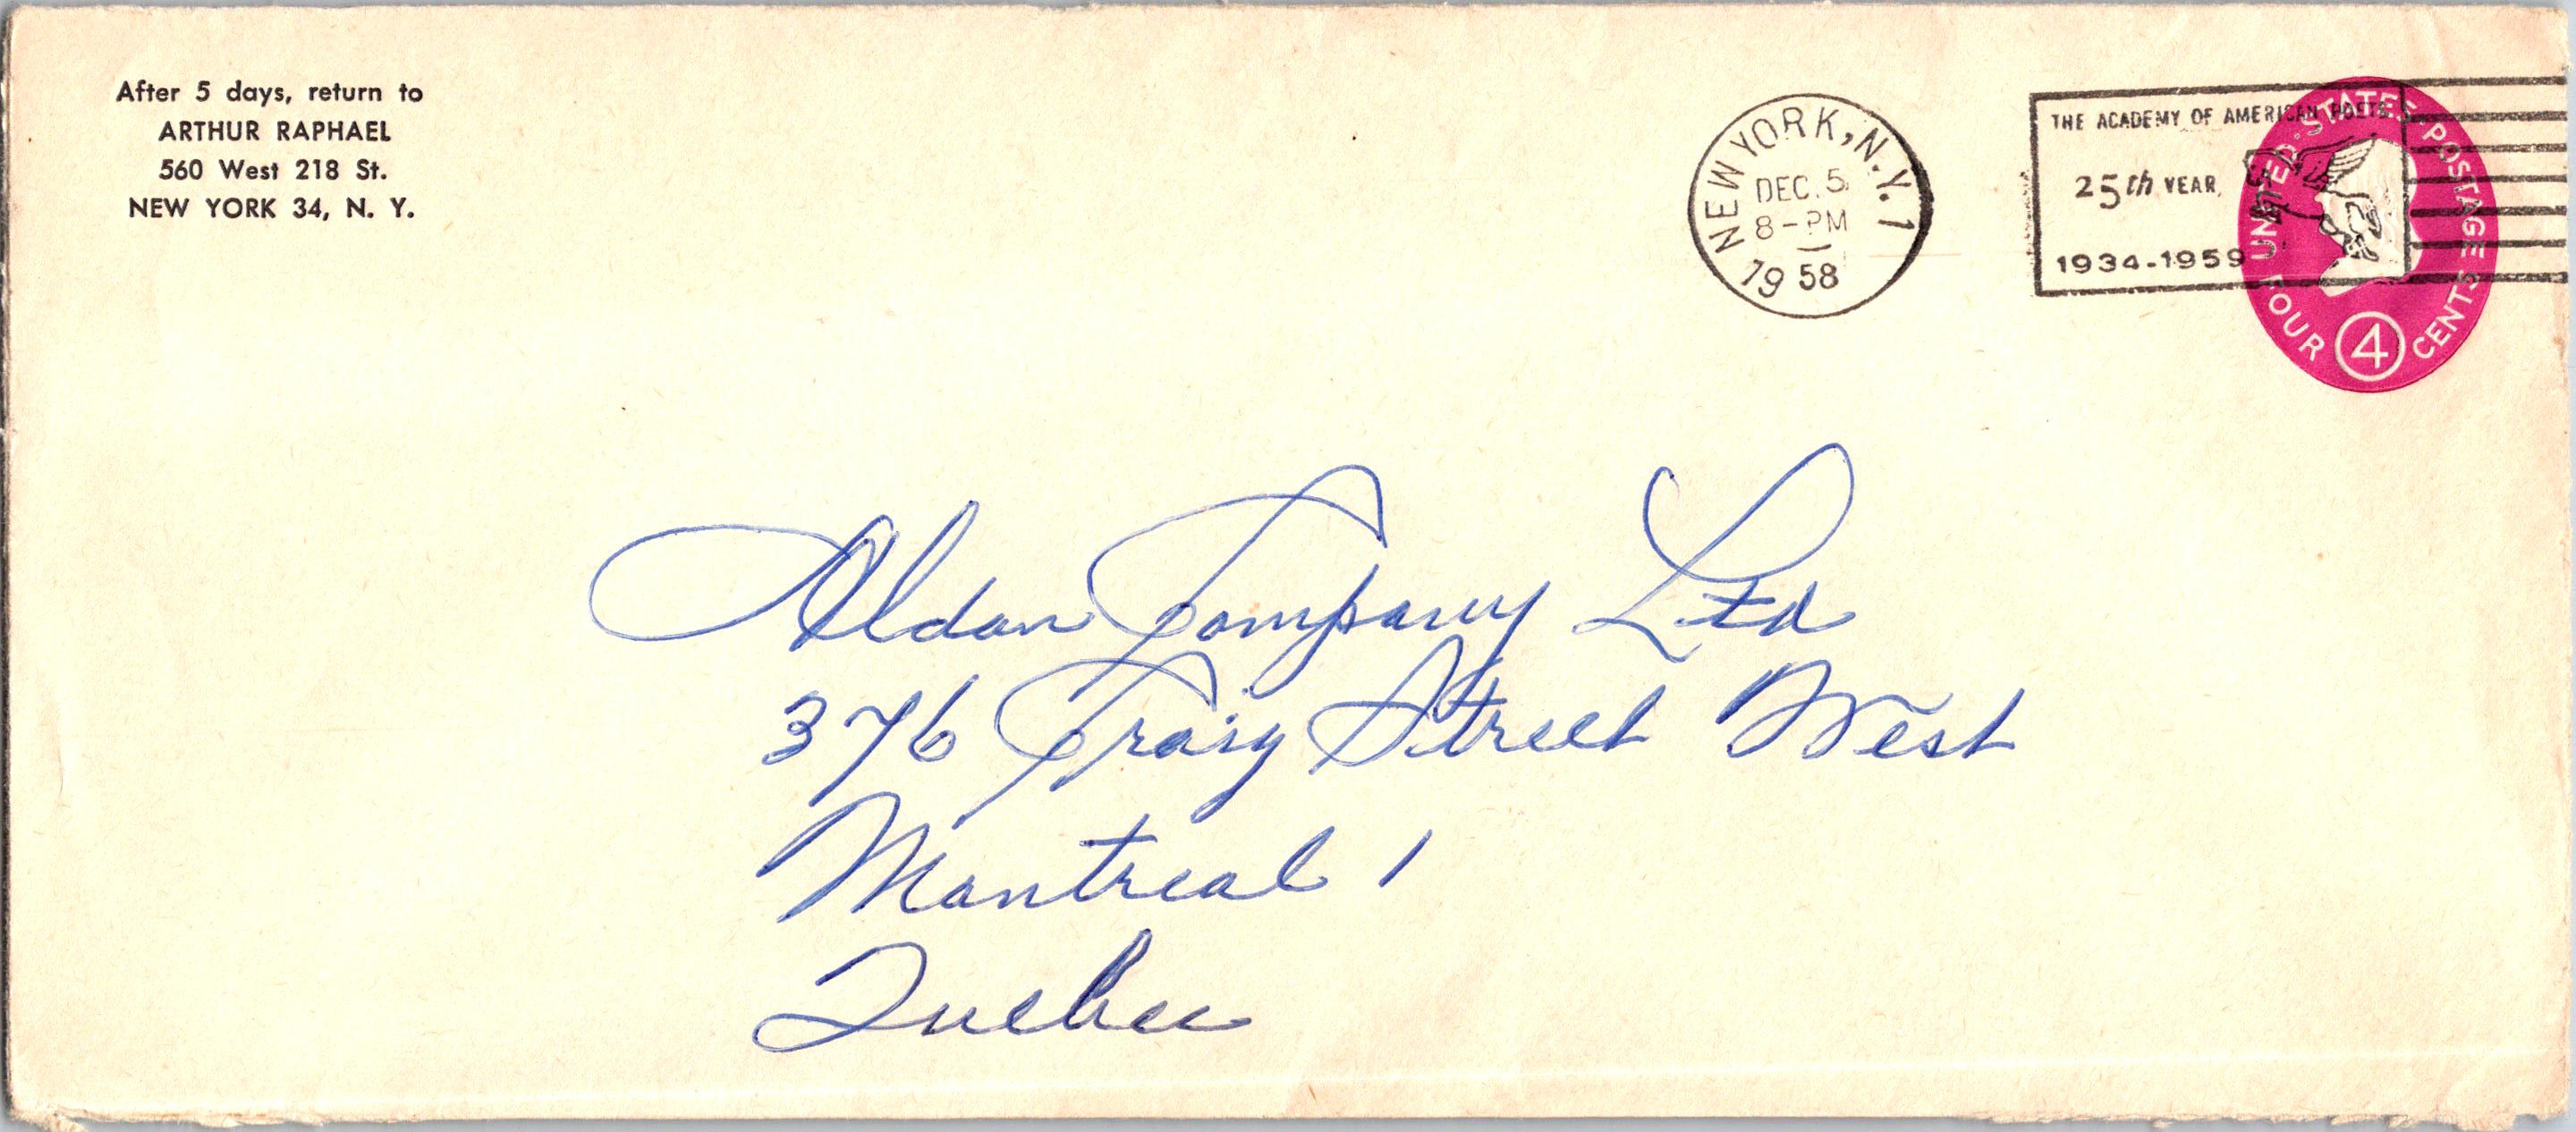 After 5 days, return to
ARTHUR RAPHAEL
560 West 218 St.
NEW YORK 34, N. Y.
NEW YORK, N.Y. 1
DEC. 5
8-PM
1958
THE ACADEMY OF AMERICAN POETS
25th YEAR
1934-1959
UNITED STATES POSTAGE
FOUR 4 CENTS
Aldan Company Ltd
376 Craig Street West
Montreal 1
Quebec